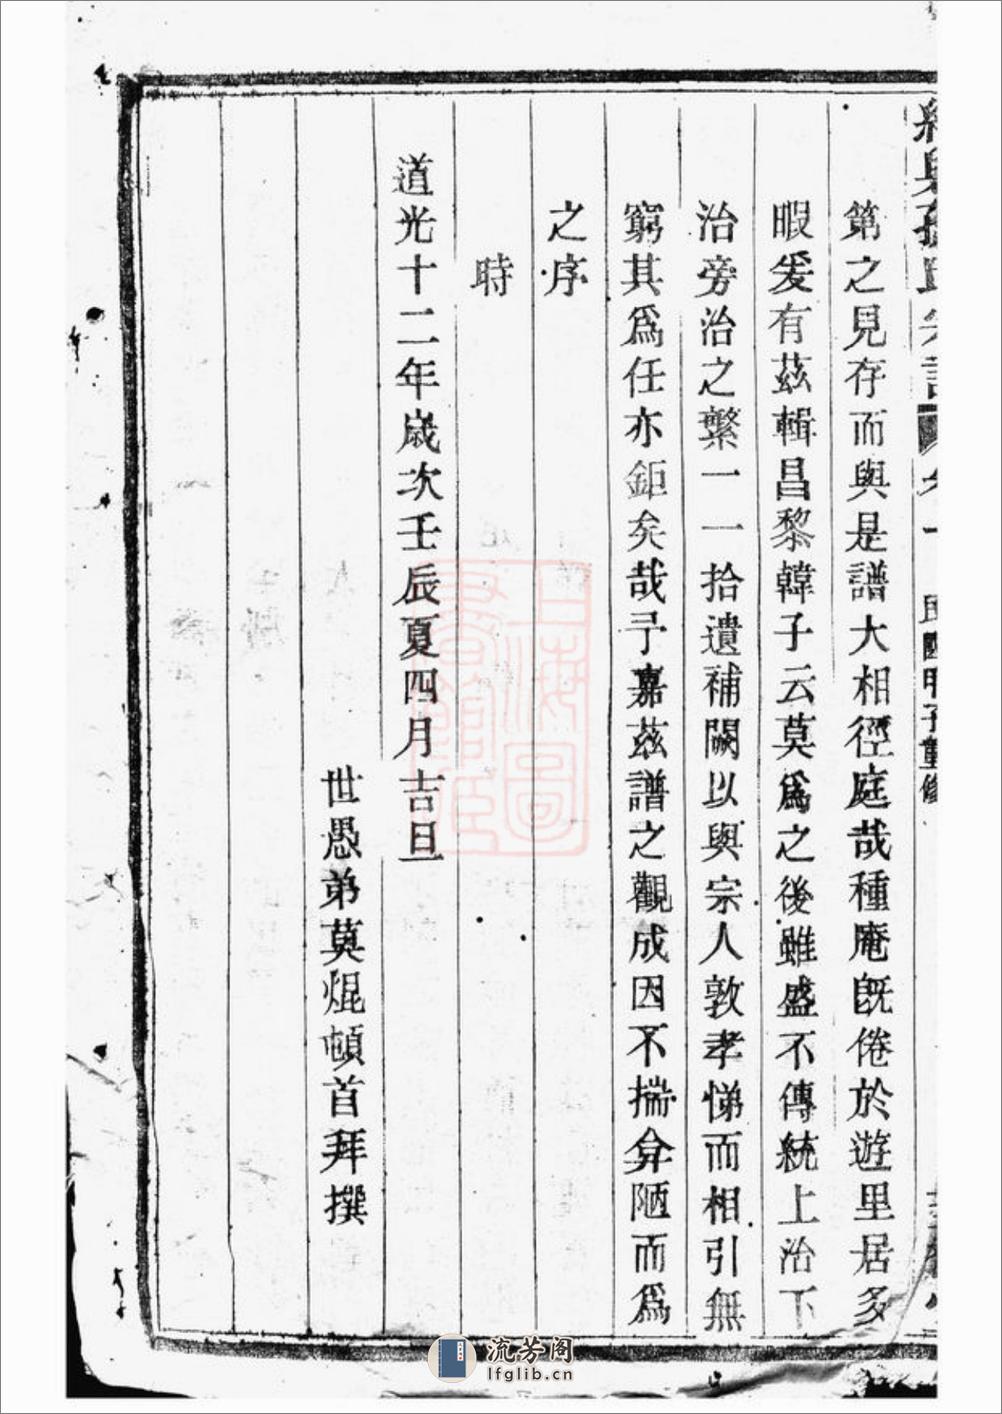 孫氏宗譜 卷一 民國甲子重修
第之見存而與是譜大相徑庭哉種庵旣倦於遊里居多
暇爰有茲輯昌黎韓子云莫爲之後雖盛不傳統上治下
治旁治之繁一一拾遺補闕以與宗人敦孝悌而相引無
窮其爲任亦鉅矣哉予嘉茲譜之觀成因不揣弇陋而爲
之序
時
道光十二年歲次壬辰夏四月吉旦
世愚弟莫焜頓首拜撰
上海圖
書館藏
流芳阁
lfglib.cn